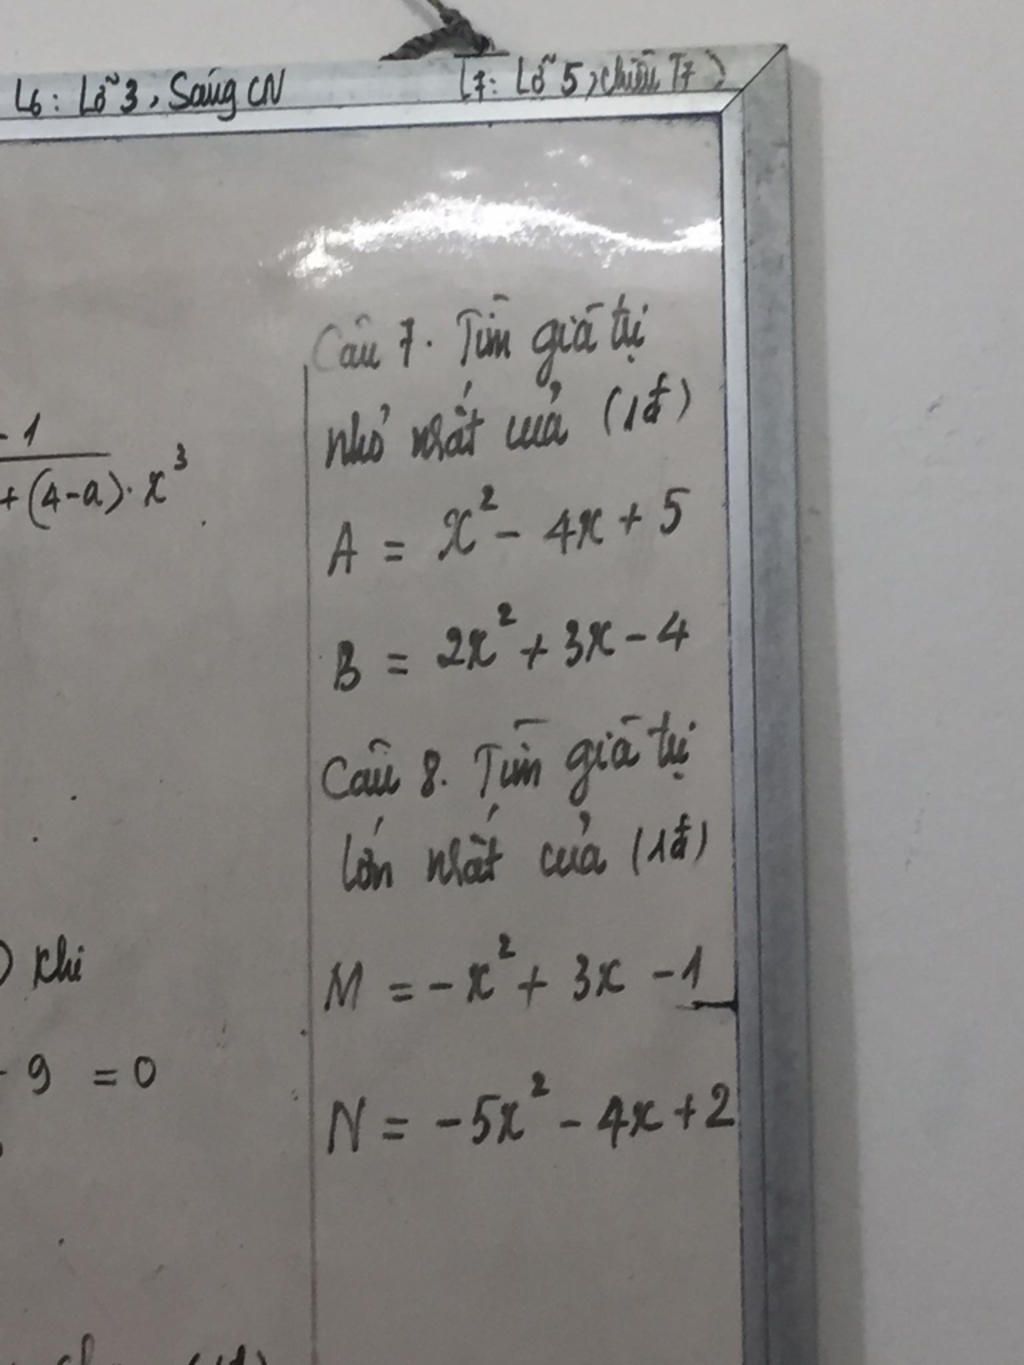 L6: Lỗ 3, Sáng CN
L7: Lỗ 5, chiều T7)
- 1
+ (4-a). x³
) khi
- 9 = 0
Câu 7. Tìm giá trị
nhỏ nhất của (1đ)
A = x² - 4x + 5
B = 2x² + 3x - 4
Câu 8. Tìm giá trị
lớn nhất của (1đ)
M = -x² + 3x - 1
N = -5x² - 4x + 2